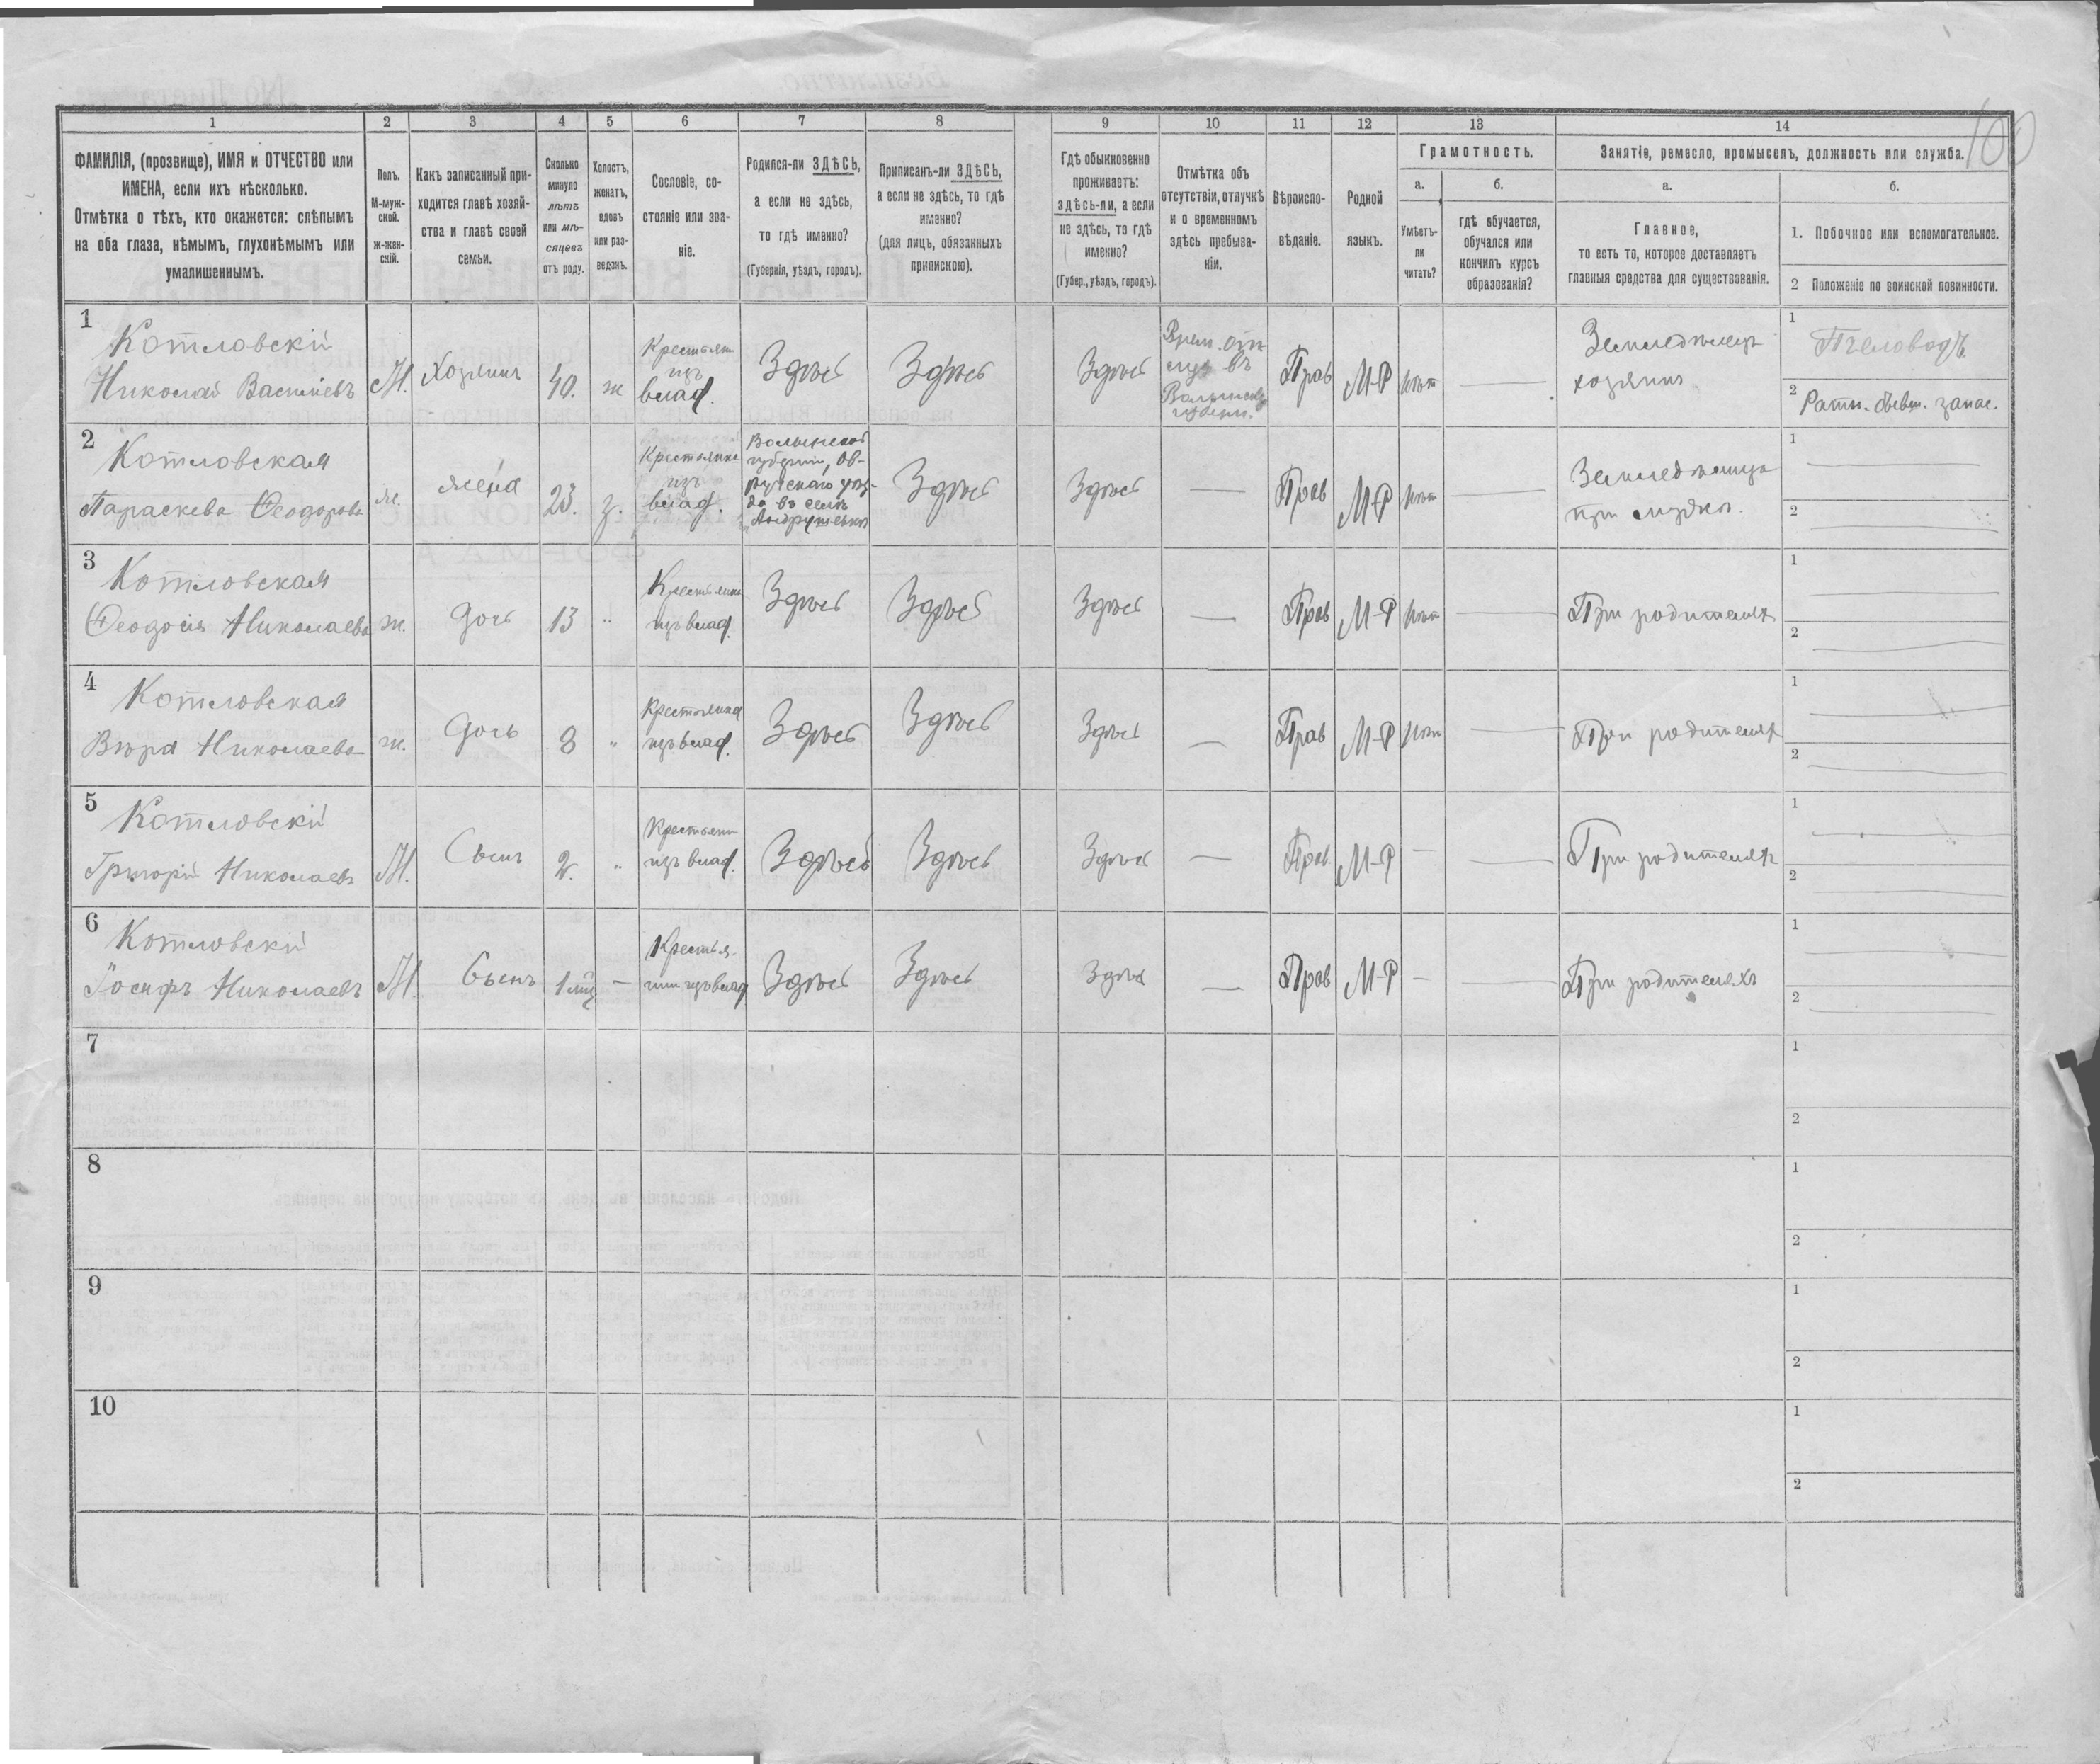 100
1 2 3 4 5 6 7 8 9 10 11 12 13 14
ФАМИЛІЯ, (прозвище), ИМЯ и ОТЧЕСТВО или
ИМЕНА, если ихъ нѣсколько.
Отмѣтка о тѣхъ, кто окажется: слѣпымъ
на оба глаза, нѣмымъ, глухонѣмымъ или
умалишеннымъ.
Полъ.
М-муж-
ской.
ж-жен-
скій.
Какъ записанный при-
ходится главѣ хозяй-
ства и главѣ своей
семьи.
Сколько
минуло
лѣтъ
или мѣ-
сяцевъ
отъ роду.
Холостъ,
женатъ,
вдовъ
или раз-
веденъ.
Сословіе, со-
стояніе или зва-
ніе.
Родился-ли ЗДѢСЬ,
а если не здѣсь,
то гдѣ именно?
(Губернія, уѣздъ, городъ).
Приписанъ-ли ЗДѢСЬ,
а если не здѣсь, то гдѣ
именно?
(для лицъ, обязанныхъ
припискою).
Гдѣ обыкновенно
проживаетъ:
здѣсь-ли, а если
не здѣсь, то гдѣ
именно?
(Губер., уѣздъ, городъ).
Отмѣтка объ
отсутствіи, отлучкѣ
и о временномъ
здѣсь пребыва-
ніи.
Вѣроиспо-
вѣданіе.
Родной
языкъ.
Грамотность.
а.
Умѣетъ-
ли
читать?
б.
гдѣ обучается,
обучался или
кончилъ курсъ
образованія?
Занятіе, ремесло, промыселъ, должность или служба.
а.
Главное,
то есть то, которое доставляетъ
главныя средства для существованія.
б.
1. Побочное или вспомогательное.
2 Положеніе по воинской повинности.
1
Котловскій
Николай Василіевъ
М.
Хозяинъ
40.
ж
Крестьян
изъ
влад.
Здѣсь
Здѣсь
Здѣсь
Врем. от
луч въ
Волынск
губерн.
Прав
М-Р
нѣт
Земледѣлецъ
хозяинъ
1
Пчеловод.
2
Ратн. запас.
2
Котловская
Параскева Ѳеодорова
ж.
жена
23.
з.
Крестьянка
изъ
влад.
Волынской
губерніи, Ов-
ручскаго уѣз-
да въ селѣ
Здѣсь
Здѣсь
—
Прав
М-Р
нѣт
Земледѣлица
при мужѣ.
1
2
3
Котловская
Ѳеодосія Николаева
ж.
дочь
13
"
Крестьянка
изъ влад.
Здѣсь
Здѣсь
Здѣсь
—
Прав
М-Р
нѣт
При родителях
1
2
4
Котловская
Вѣра Николаева
ж.
дочь
8
"
Крестьянка
изъ влад.
Здѣсь
Здѣсь
Здѣсь
—
Прав
М-Р
нѣт
При родителях
1
2
5
Котловскій
Григорій Николаевъ
М.
Сынъ
2.
"
Крестьянин
изъ влад.
Здѣсь
Здѣсь
Здѣсь
—
Прав.
М-Р
—
При родителях
1
2
6
Котловскій
Іосифъ Николаевъ
М.
Сынъ
1 мѣс
—
Крестья-
нин изъ влад
Здѣсь
Здѣсь
Здѣсь
—
Прав
М-Р
—
При родителяхъ
1
2
7
1
2
8
1
2
9
1
2
10
1
2